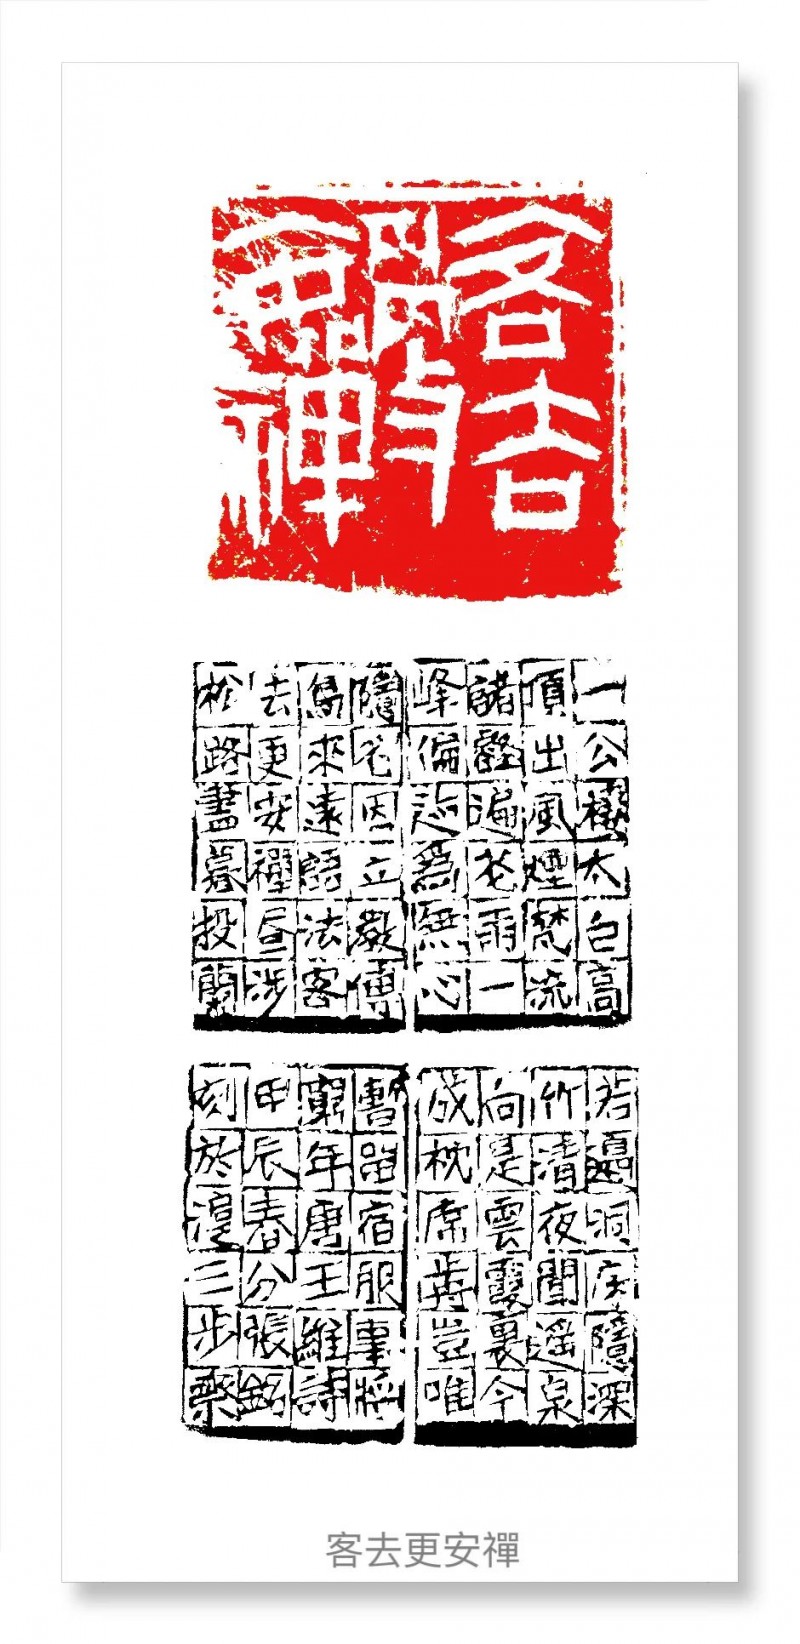 客去
更
安禪
一公棲太白高
頂出風煙梵流
諸壑遍花雨一
峰偏迹爲無心
隱名因立教傳
鳥來遠語法客
去更安禪晝涉
松路盡暮投蘭
若邊洞房隱深
竹清夜聞遥泉
向是雲霞裏今
成枕席前豈唯
暫留宿服事將
窮年唐王維詩
甲辰春分張銘
刻於滬三步齋
客去更安禪